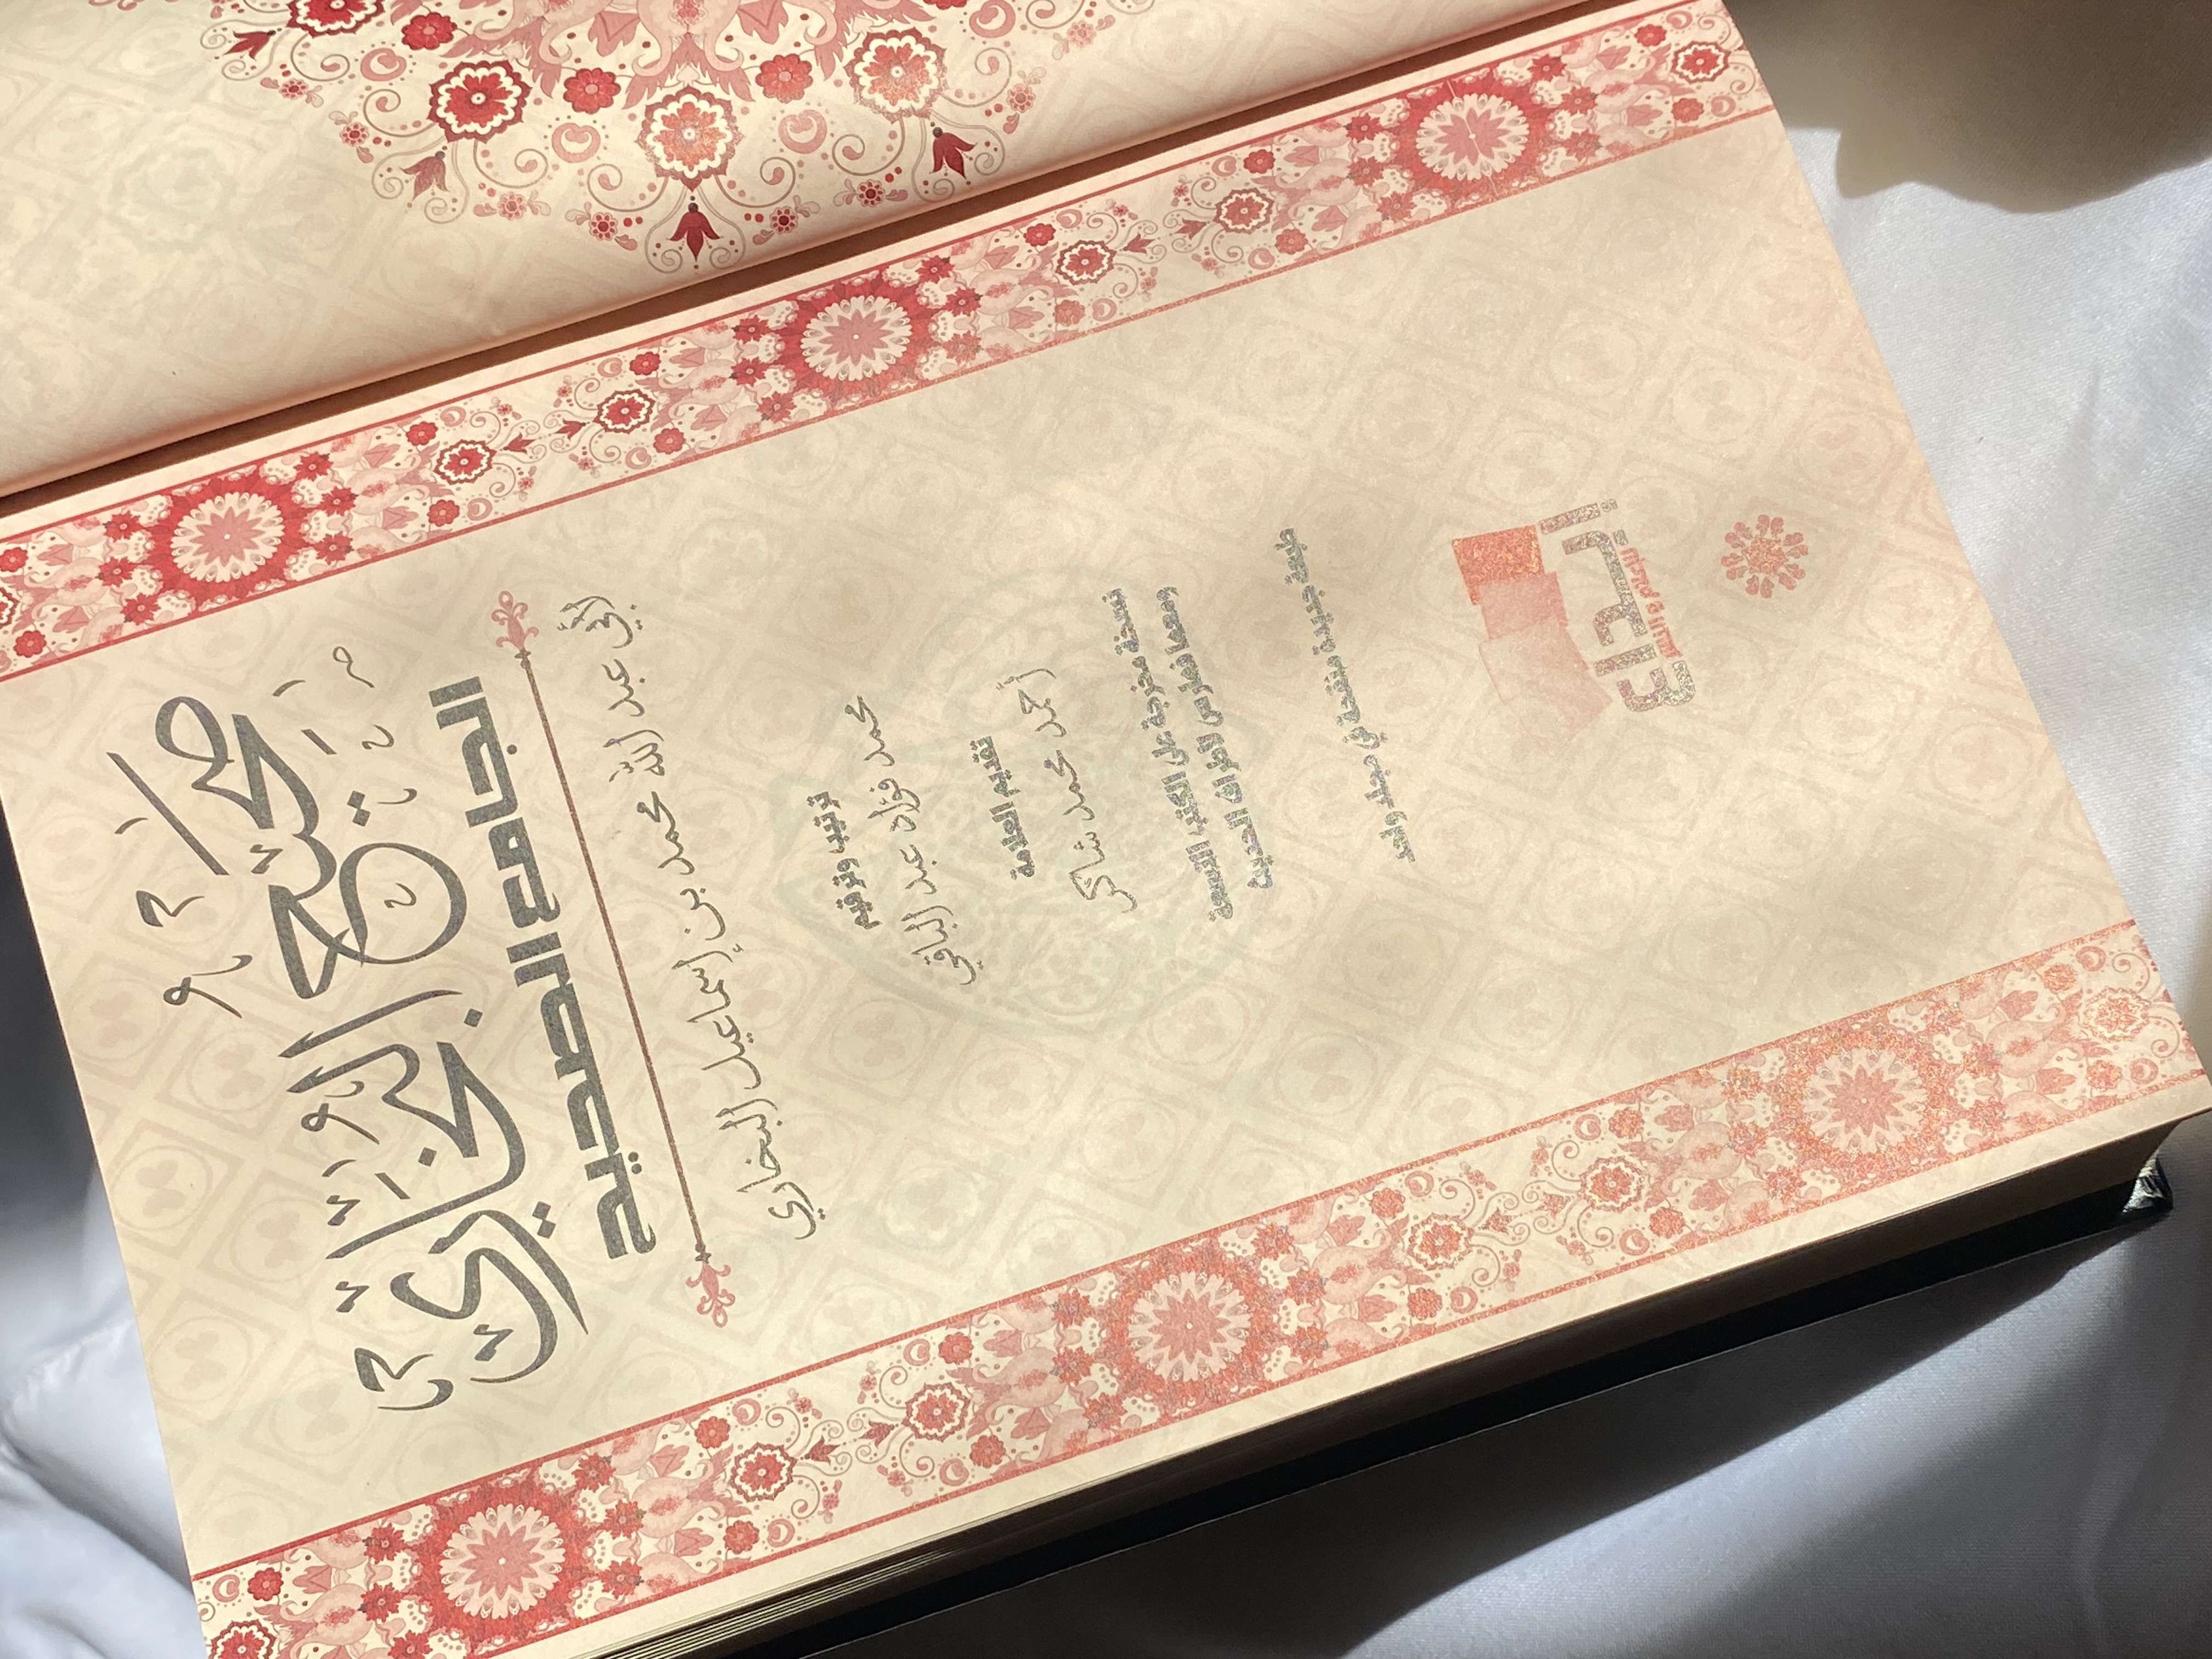 صحيح البخاري
الجامع الصحيح
لأبي عبد الله محمد بن إسماعيل البخاري
ترتيب وترقيم
محمد فؤاد عبد الباقي
تقديم العلامة
أحمد محمد شاكر
نسخة مخرجة على الكتب التسعة
ومعها فهارس لأطراف الحديث
طبعة جديدة منقحة في مجلد واحد
إبداع
للإعلام و النشر